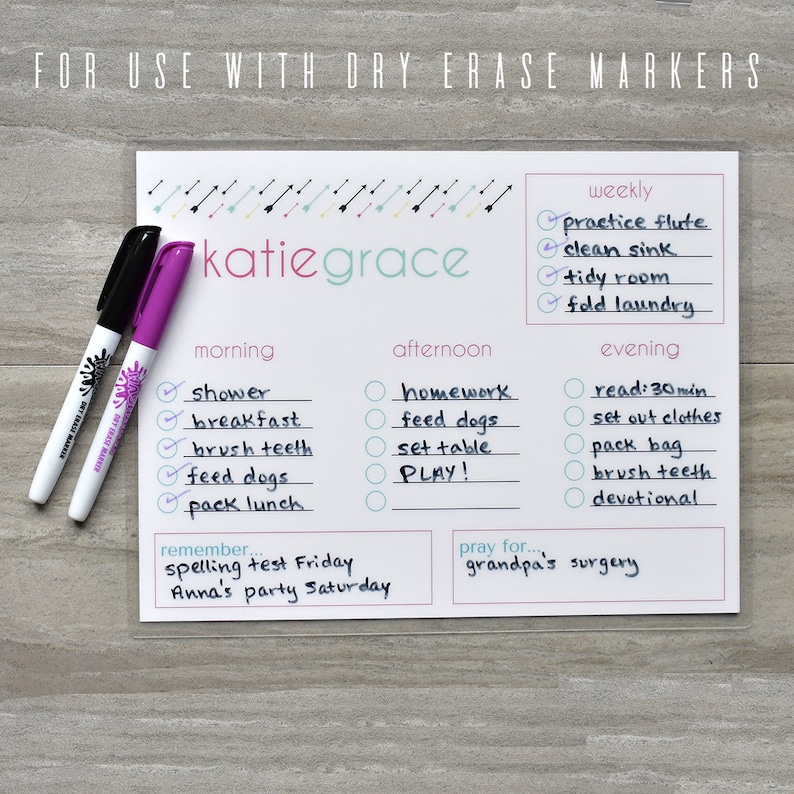 FOR USE WITH DRY ERASE MARKERS
katiegrace
weekly
practice flute
clean sink
tidy room
fold laundry
morning
shower
breakfast
brush teeth
feed dogs
pack lunch
afternoon
homework
feed dogs
set table
PLAY!
evening
read: 30 min
set out clothes
pack bag
brush teeth
devotional
remember...
spelling test Friday
Anna's party Saturday
pray for...
grandpa's surgery
DRY ERASE MARKER
DRY ERASE MARKER